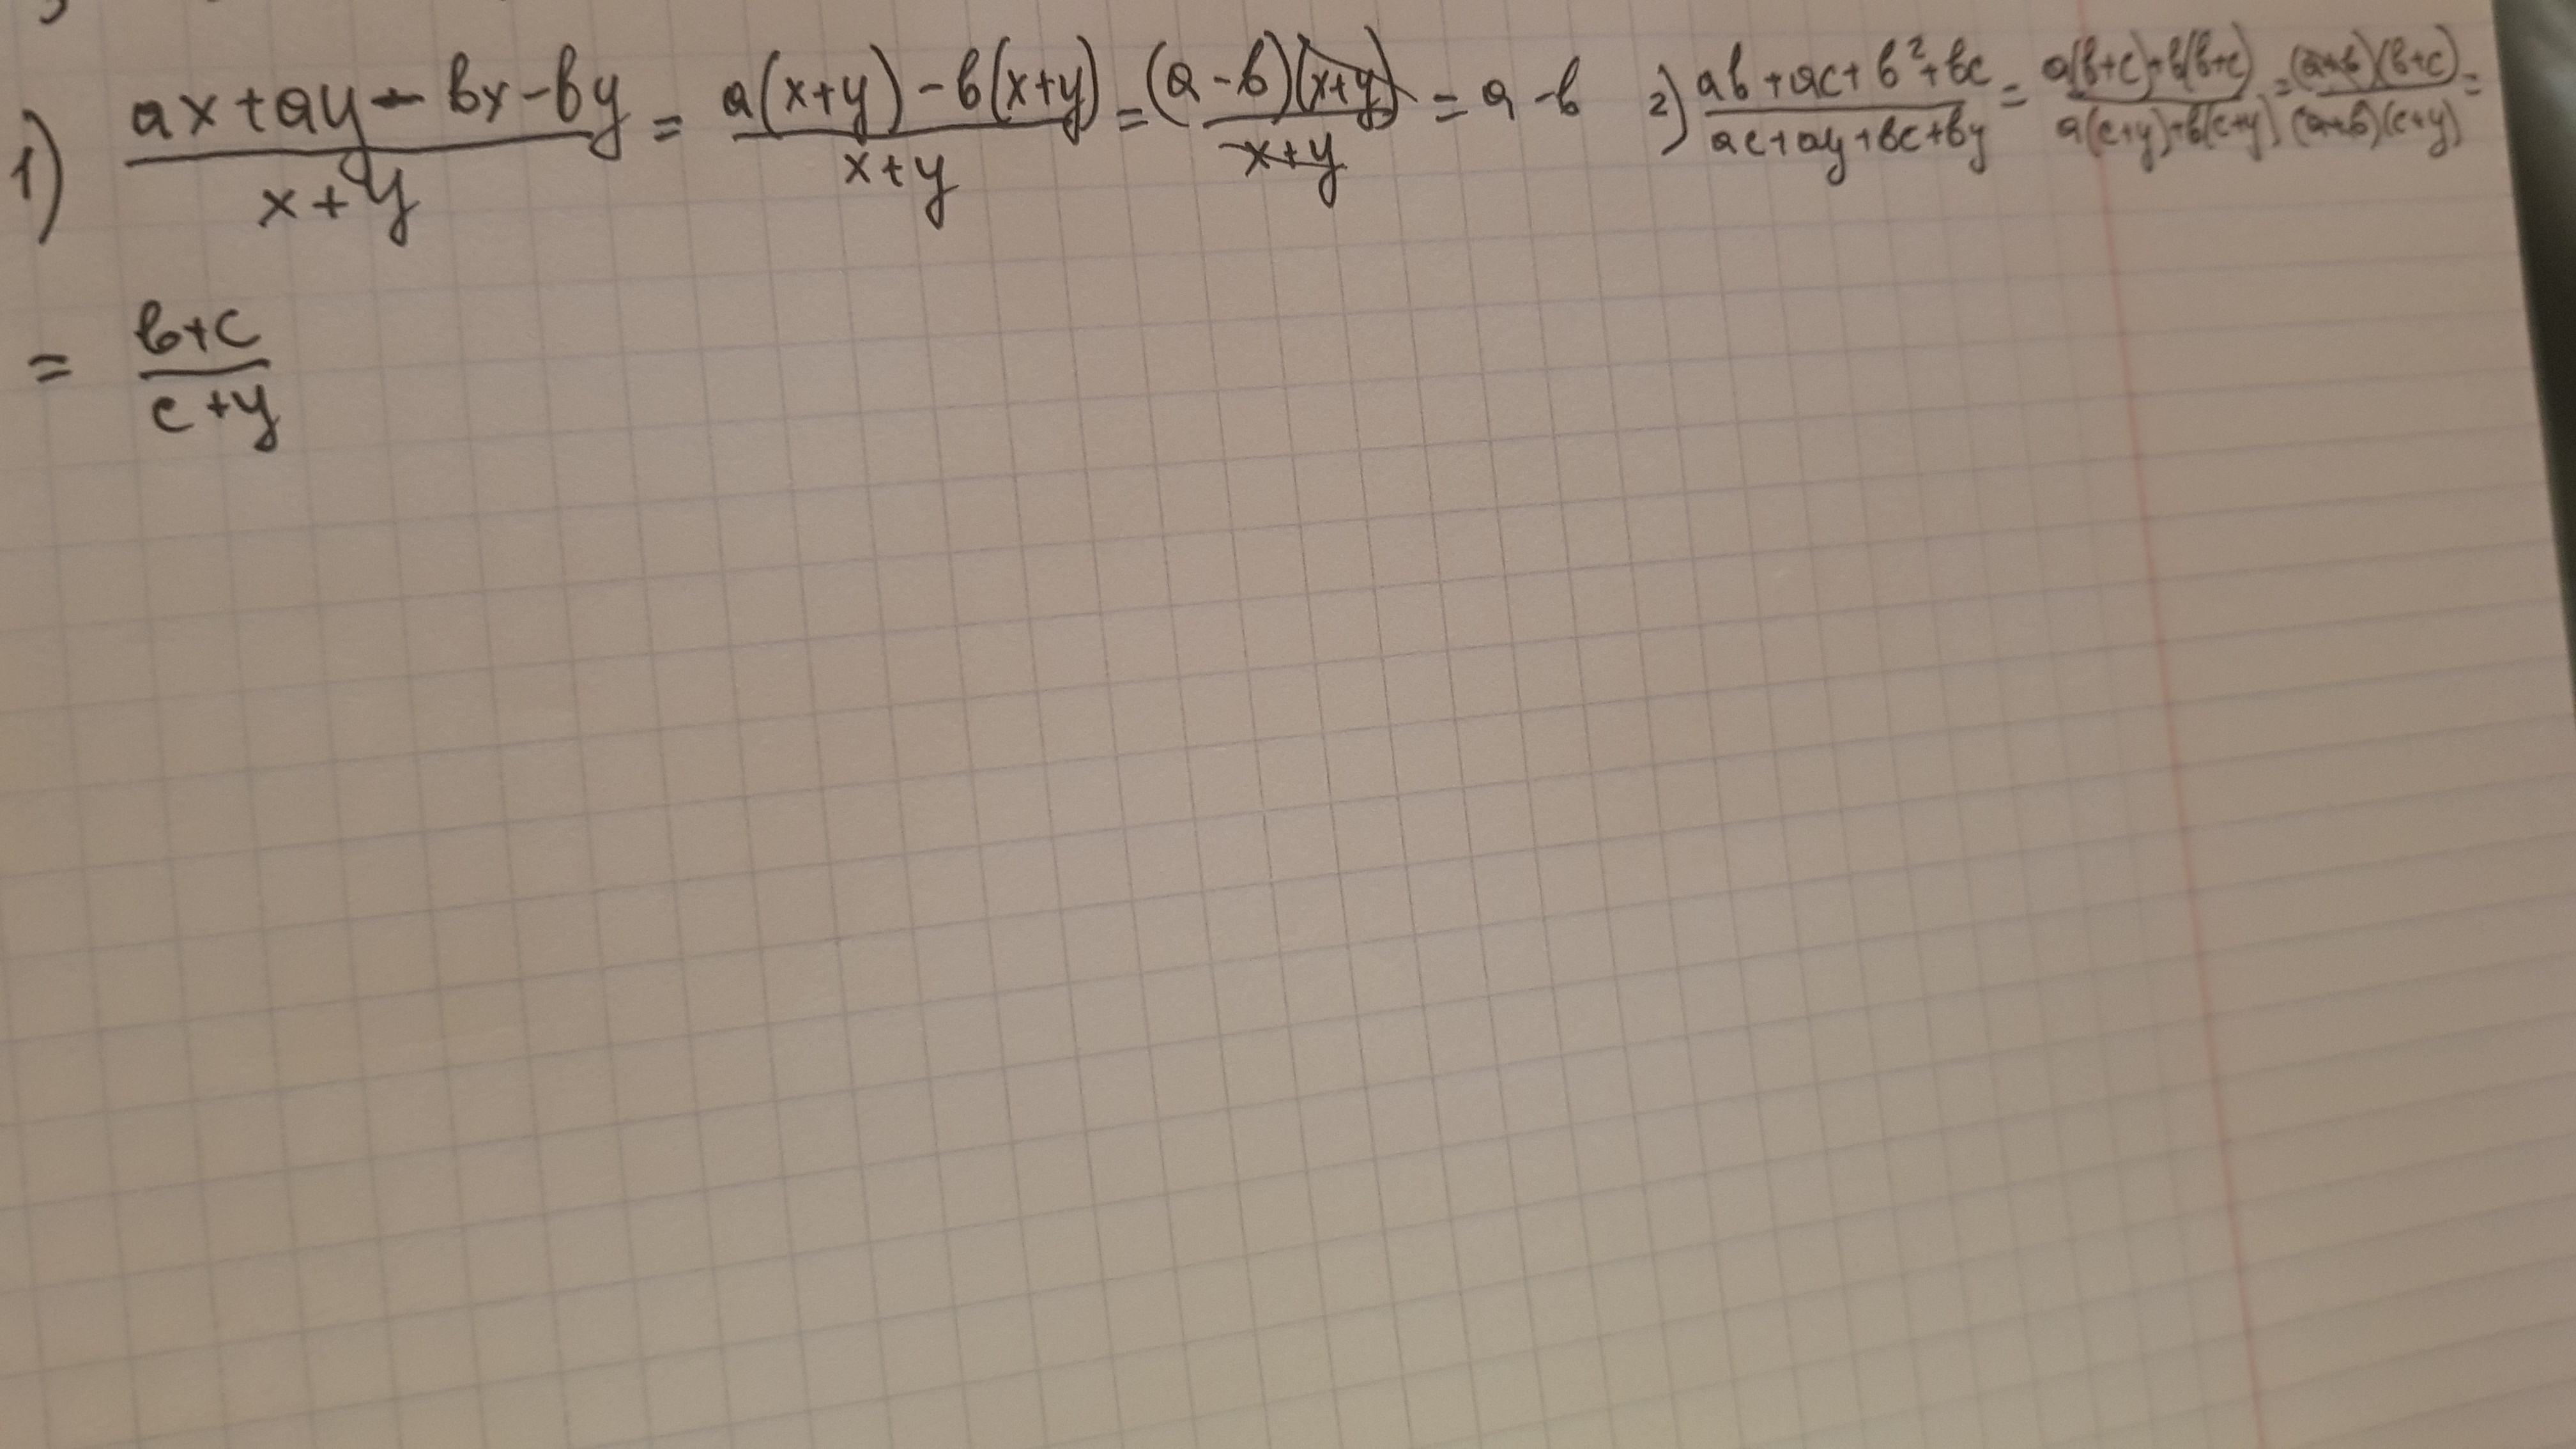 1) (ax+ay-bx-by)/(x+y) = (a(x+y)-b(x+y))/(x+y) = ((a-b)(x+y))/(x+y) = a-b 2) (ab+ac+b²+bc)/(ac+ay+bc+by) = (a(b+c)+b(b+c))/(a(c+y)+b(c+y)) = ((a+b)(b+c))/((a+b)(c+y)) =
= (b+c)/(c+y)